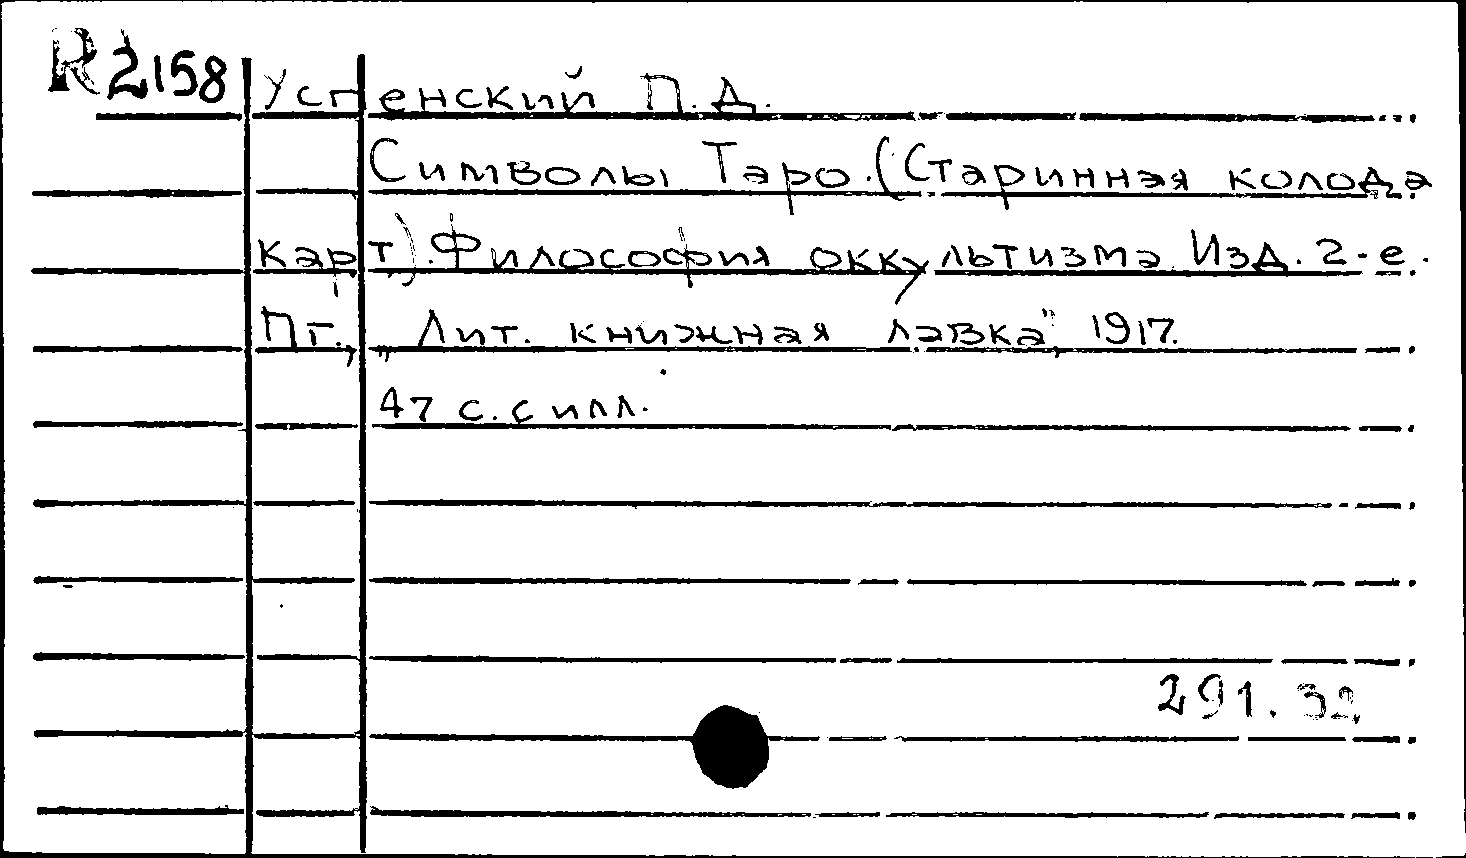 R2158 Успенский П.Д.
Символы Таро. (Старинная колода
карт). Философия оккультизма. Изд. 2-е.
Пг., „Лит. книжная лавка", 1917.
47 с. с илл.
291.32